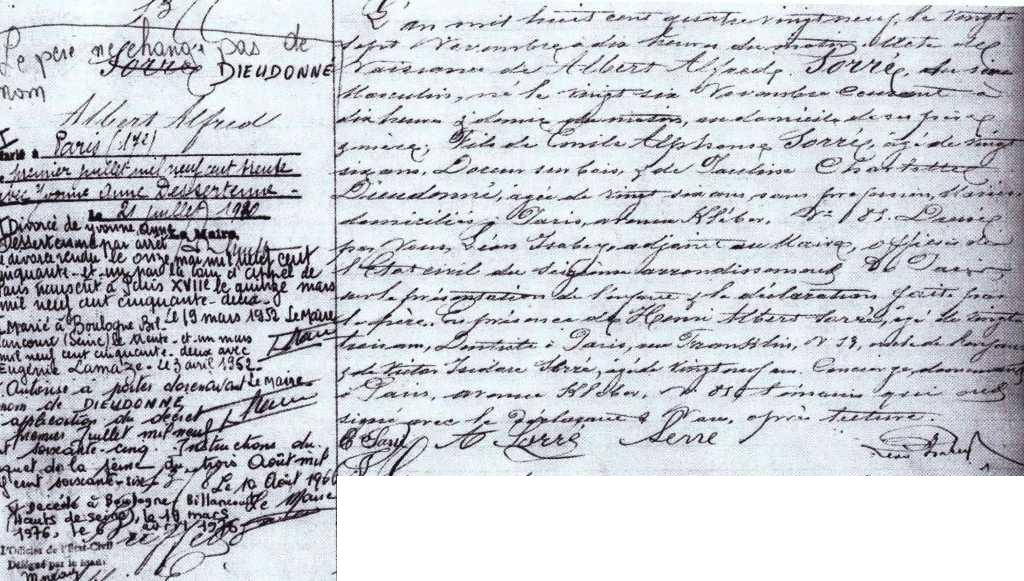 Le père ne change pas de
nom
Sorré DIEUDONNE
Albert Alfred
Marié à Paris (17e)
premier juillet mil neuf cent trente
avec Yvonne Anne Dessertenne -
Le 21 juillet 1930
Divorcé de Yvonne Anne Le Maire
Dessertenne par arrêt
le onze mai mil neuf cent
cinquante-et-un par la Cour d'appel de
Paris transcrit à Paris XVIIe le quinze mars
mil neuf cent cinquante-deux.
Le 19 mars 1952 Le Maire
Marié à Boulogne Bil-
lancourt (Seine) le trente-et-un mars
mil neuf cent cinquante-deux avec
Eugénie Lamaze - Le 3 avril 1952
Autorisé à porter dorénavant Le Maire
nom de DIEUDONNE
application de décret
premier juillet mil neuf
soixante-cinq. Instructions du
quet de la Seine du trois Août mil
cent soixante-six
Le 10 Août 1966
Le Maire
décédé à Boulogne Billancourt
(Hauts de Seine), le 19 mars
1976, le 6 avril 1976
L'Officier de l'État-Civil
Délégué par le maire
L'an mil huit cent quatre vingt neuf, le vingt
sept Novembre à dix heures du matin. Acte de
Naissance de Albert Alfred Sorré, du sexe
Masculin, né le vingt six Novembre courant à
dix heures du matin, au domicile de ses père
& mère; Fils de Emile Alphonse Sorré, âgé de vingt
six ans, Doreur sur bois, & de Pauline Charlotte
Dieudonné, âgée de vingt six ans sans profession, Mariés
domiciliés à Paris, avenue Kléber, No 83. Dressé
par Nous, Léon Isabey, adjoint au Maire, officier de
l'Etat civil du seizième arrondissement de Paris
sur la présentation de l'enfant & la déclaration faite par
le père. En présence de Henri Albert Sorré, âgé de vingt
trois ans, Dentiste à Paris, rue Franklin, No 13, oncle de l'enfant
& de Victor Isidore Serré, âgé de vingt neuf ans. Concierge, demeurant
à Paris, avenue Kléber, No 83 témoins qui ont
signé avec le Déclarant & Nous, après lecture.
E Sorré A Sorré Serré Léon Isabey